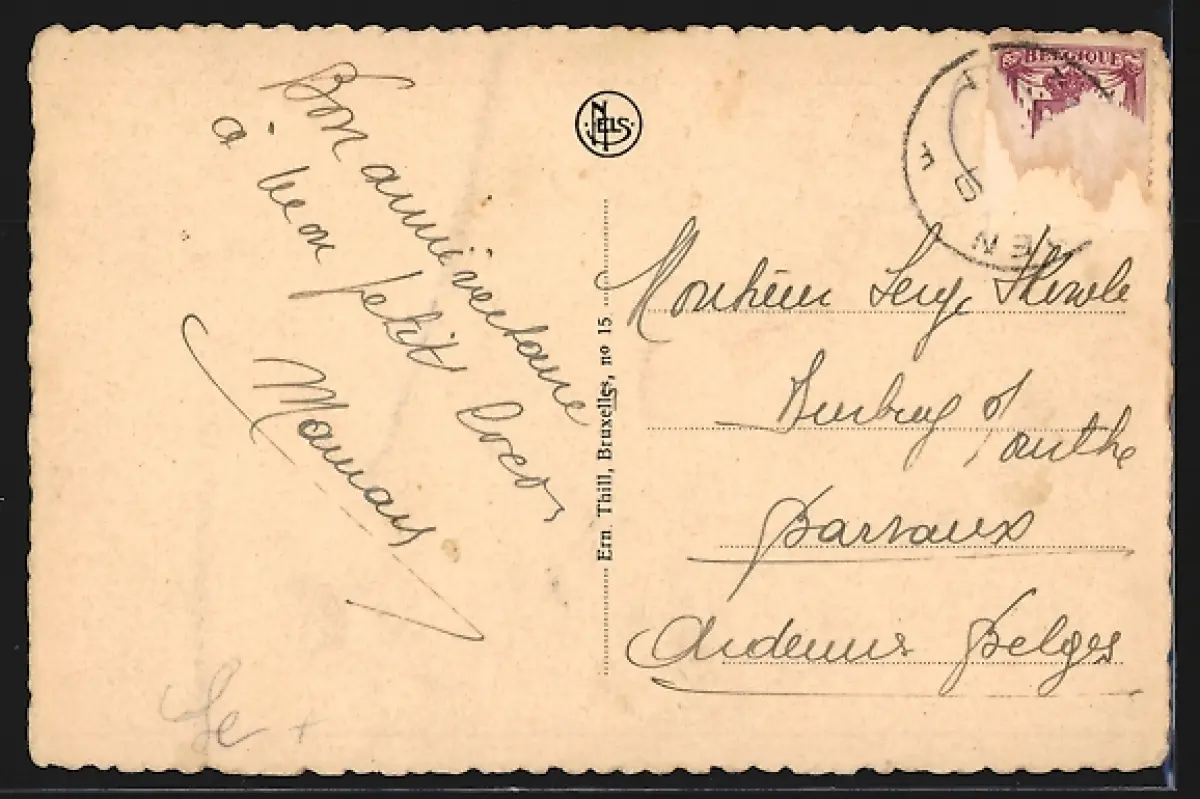 Bon anniversaire
à mon petit coco
Maman
NELS
Ern. Thill, Bruxelles, no 15
BELGIQUE
Monsieur Serge
Barvaux
Ardennes Belges